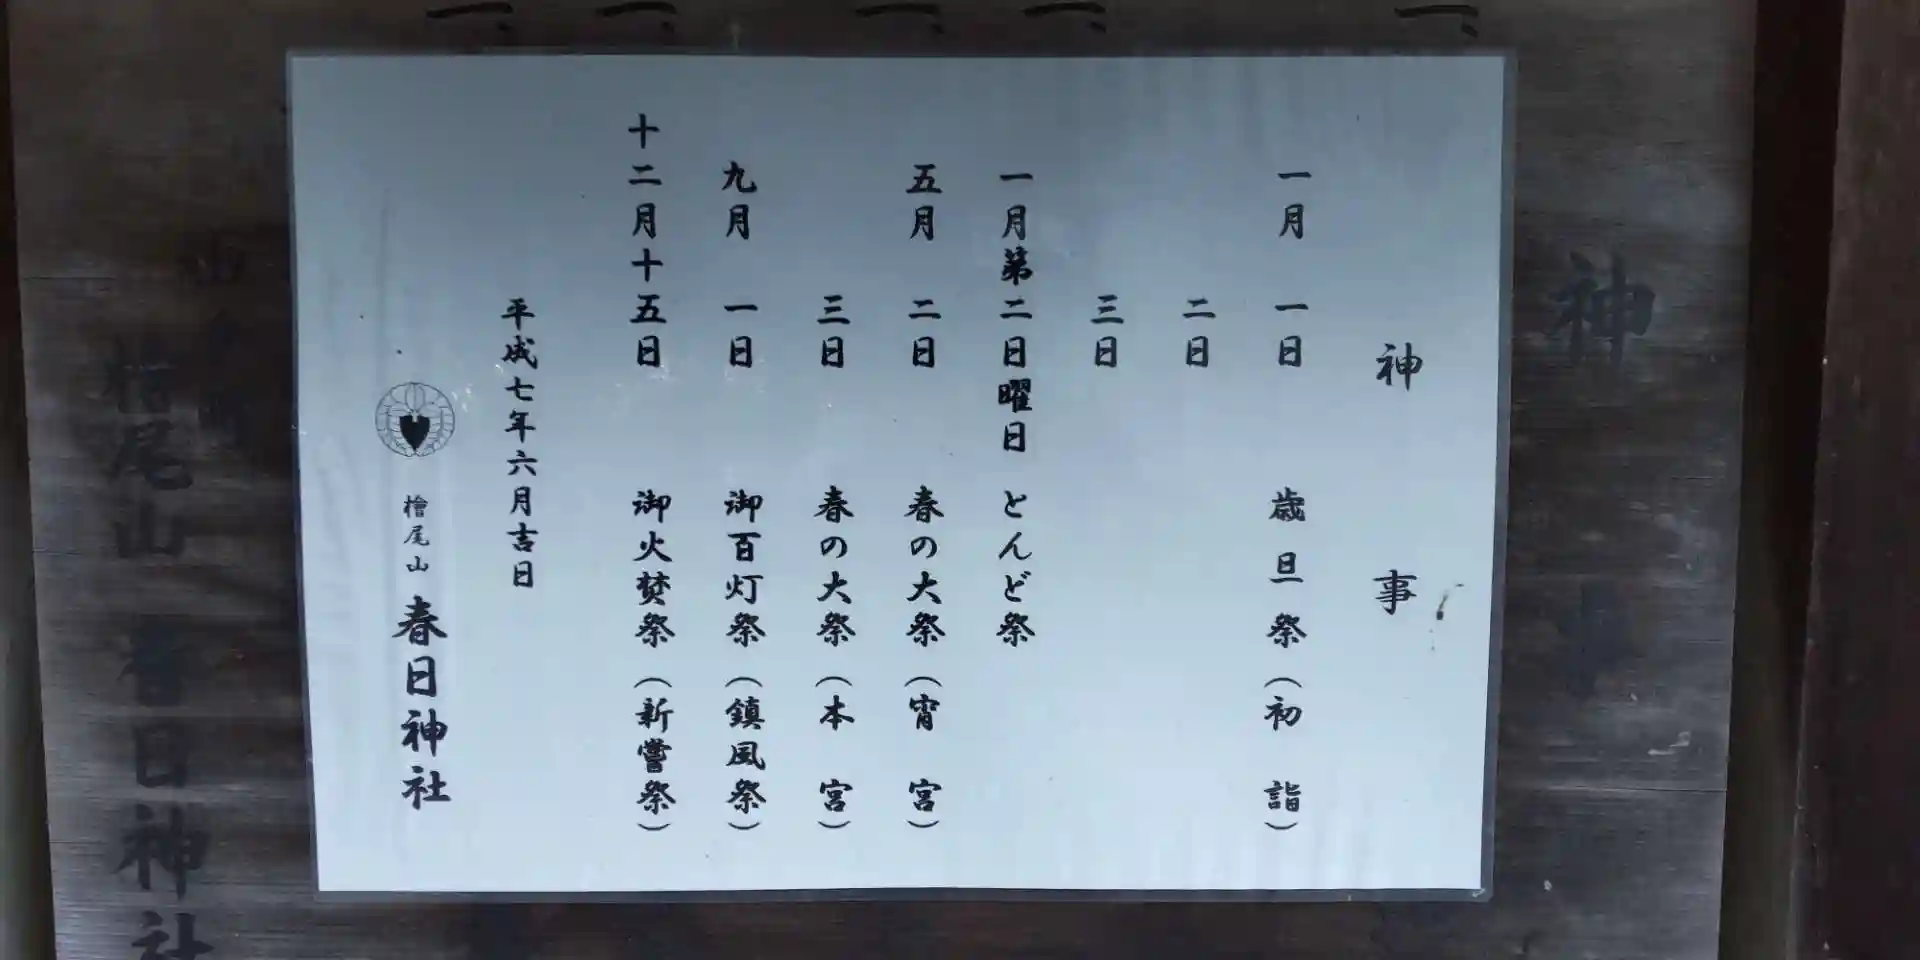 神事
一月 一日 歳旦祭(初詣)
二日
三日
一月第二日曜日 とんど祭
五月 二日 春の大祭(宵宮)
三日 春の大祭(本宮)
九月 一日 御百灯祭(鎮風祭)
十二月十五日 御火焚祭(新嘗祭)
平成七年六月吉日
檜尾山 春日神社
神
檜尾山 春日神社